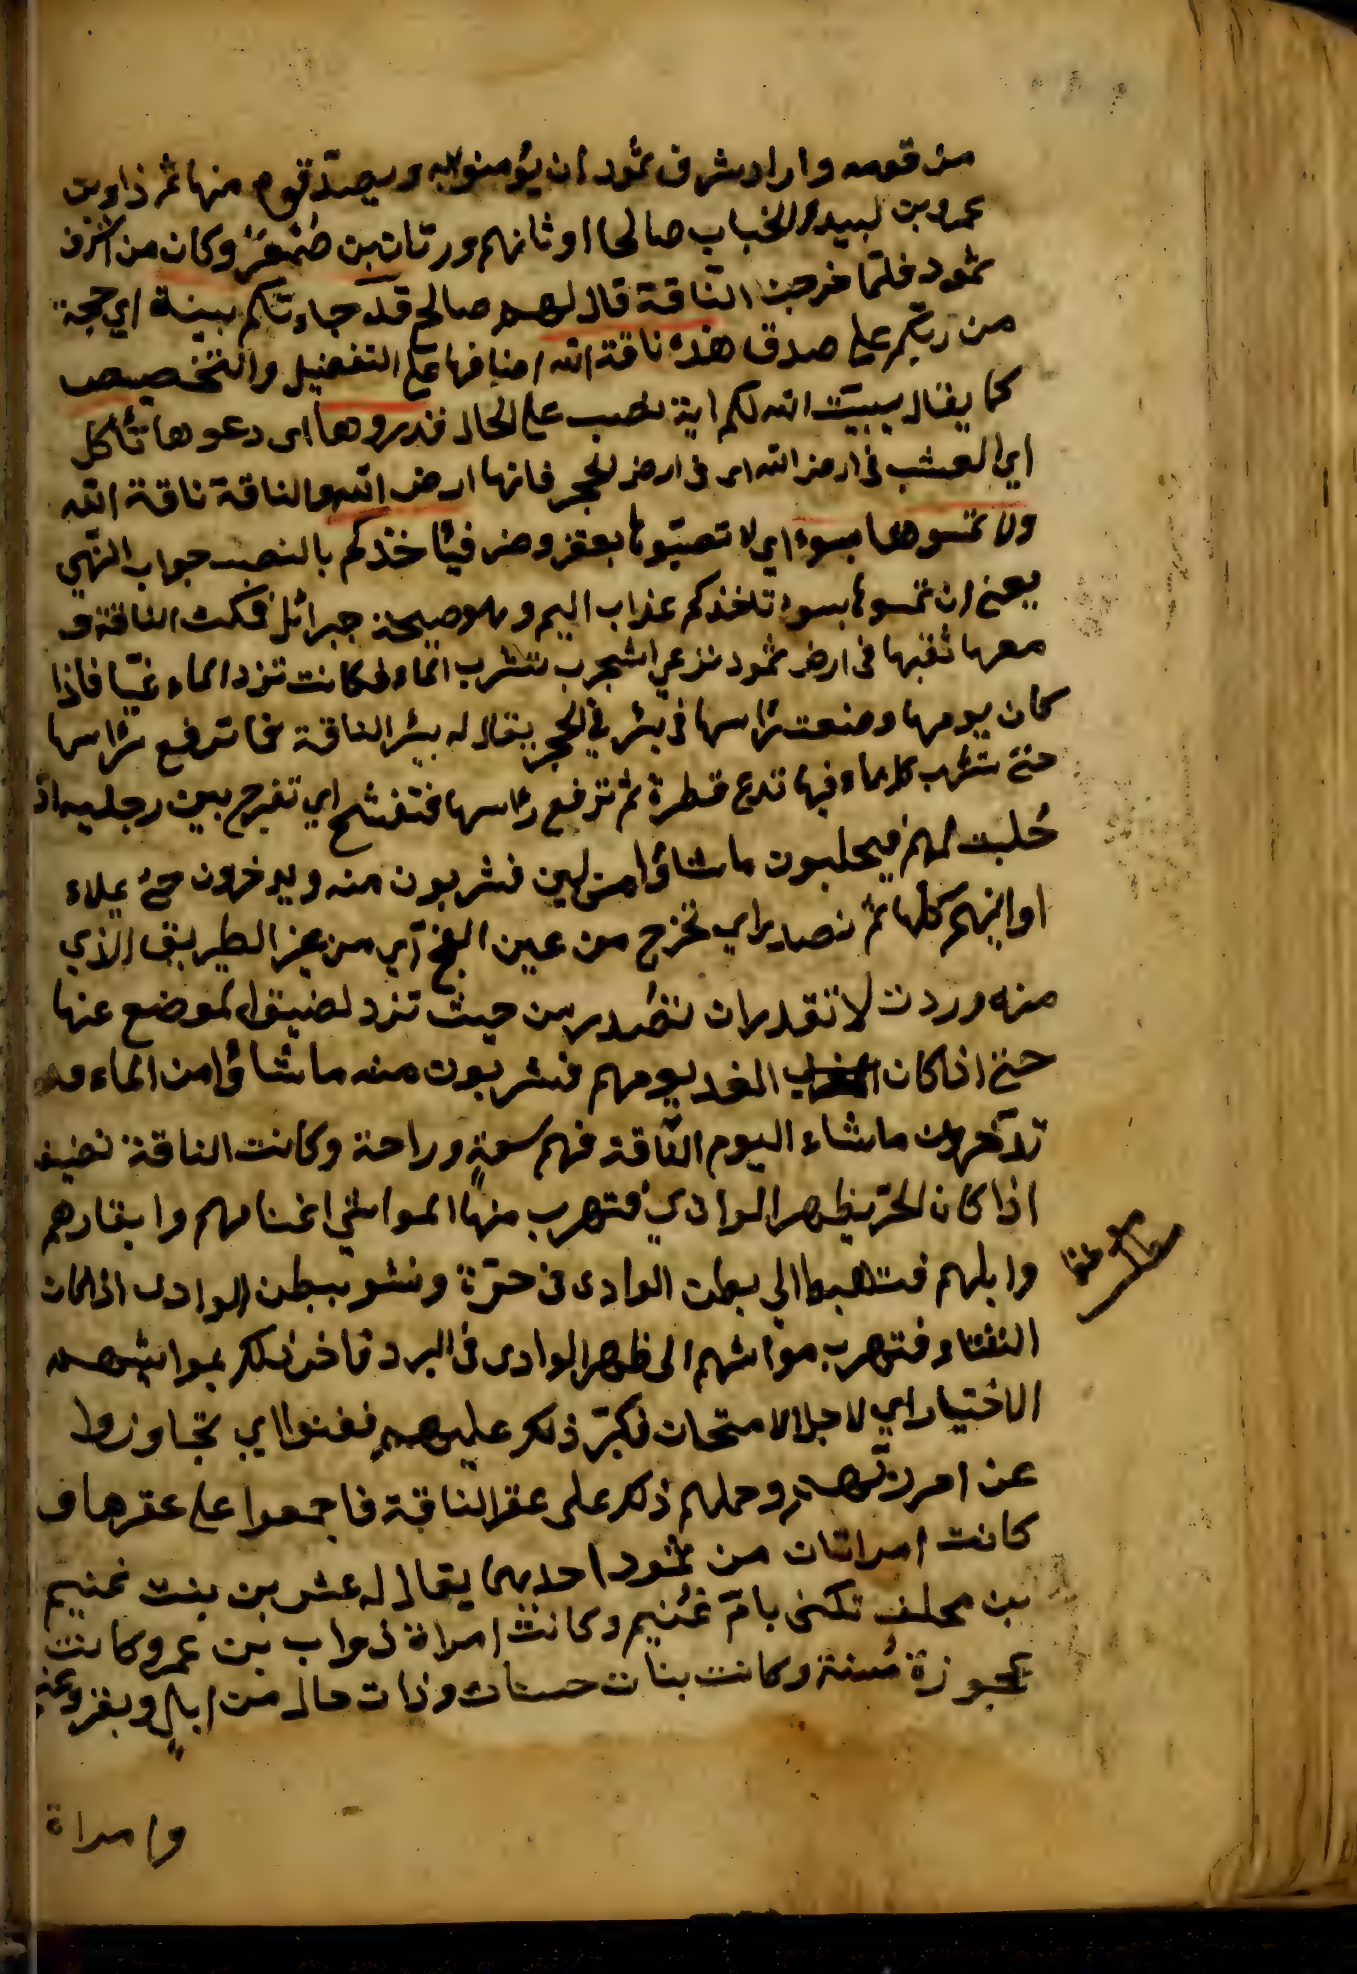 من قومه واراد شرف ثمود ان يؤمنوا به ويصدقوه منها ثم ذاوب
عمرو بن لبيد والخباب صاحا اوثانهم ورتاب بن صمعر وكان من اشرف
ثمود فلما خرجت الناقة قال لهم صالح قد جاءتكم بينة اي حجة
من ربكم على صدق هذه ناقة الله اضافها على التفضيل والتخصيص
كما يقال بيت الله لكم اية نصب على الحال فذروها اى دعوها تأكل
اي العشب فى ارض الله اى فى ارض الحجر فانها ارض الله والناقة ناقة الله
ولا تمسوها بسوء اي لا تصيبوها بعقر وضر فيأخذكم بالنصب جواب النهي
يعنى ان تمسوها بسوء تاخذكم عذاب اليم وهو صيحة جبرائل فمكث الناقة و
معها ثقبها فى ارض ثمود تزعى الشجر ب تشرب الماء فكانت تزد الماء غبا فاذا
كان يومها وضعت رأسها فى بئر في الحجر يقال له بئر الناقة فما ترفع رأسها
حتى تشرب كل ماء فيها تدع قطرة ثم ترفع رأسها فتفشح اي تفرج بين رجليه اذ
حلبت لهم فيحلبون ما شاؤا من لبن فشربون منه ويدخرون حتى يملاء
اوانيهم كلها ثم نصدر اي تخرج من عين الفج اي من غير الطريق الذي
منه وردت لا تقدر ان تصدر من حيث تزد لضيق الموضع عنها
حتى اذا كان الغد يومهم فشربون منه ما شاؤا من الماء و
تدخرون ما شاء اليوم الناقة فهم سعة وراحة وكانت الناقة نضيف
اذا كان الحر بظهر الوادي فتهرب منها المواشي اغنامهم وابقارهم
وابلهم فتهبط الي بطن الوادى فى حرة ونشو ببطن الوادى اذا كان
الشتاء فتهرب مواشهم الى ظهر الوادى فى البرد فاضر ذلك بمواشيهم
الاختيار اي لاجل الامتحان فكبر ذلك عليهم فعتوا اي تجاوزوا
عن امر ربهم وحملهم ذلك على عقر الناقة فاجمعوا على عقرها و
كانت امراتان من ثمود احديهما يقال له عشر بن بنت غنيم
بن محلف تكنى بام غنيم وكانت امراة ذواب بن عمرو كانت
عجوزة مسنة وكانت بنات حسنات وذات مال من ابل وبقر وغنم
وامراة